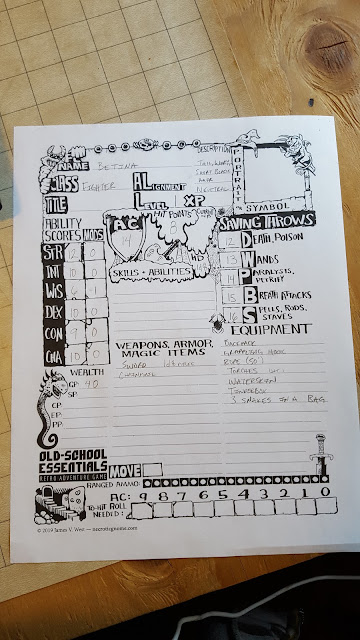 NAME BETINA
DESCRIPTION
PORTRAIT OR SYMBOL
CLASS FIGHTER
ALIGNMENT NEUTRAL
TITLE
LEVEL 1 XP
ABILITY SCORES MODS
AC 14
HIT POINTS 8
HD
SAVING THROWS
STR 0
12 DEATH, POISON
INT 10 0
13 WANDS
WIS 6 -1
14 PARALYSIS, PETRIFY
DEX 10 0
15 BREATH ATTACKS
CON 9 0
16 SPELLS, RODS, STAVES
CHA 10 0
SKILLS + ABILITIES
WEAPONS, ARMOR, MAGIC ITEMS
SWORD
CHAINMAIL
EQUIPMENT
BACKPACK
GRAPPLING HOOK
ROPE (50')
TORCHES
WATERSKIN
TINDERBOX
3 SNAKES IN A BAG
WEALTH
GP: 40
SP:
CP:
EP:
PP:
OLD-SCHOOL
ESSENTIALS
RETRO ADVENTURE GAME
MOVE
RANGED AMMO:
AC: 9 8 7 6 5 4 3 2 1 0
TO-HIT ROLL NEEDED:
© 2019 James V. West — necroticgnome.com